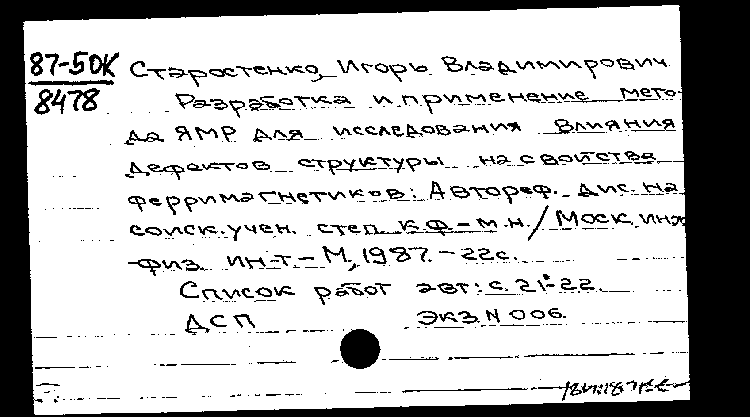 87-50К
8478
Старостенко, Игорь Владимирович
Разработка и применение мето-
да ЯМР для исследования влияния
дефектов структуры на свойства
ферримагнетиков: Автореф. дис. на
соиск. учен. степ. к.ф-м.н. / Моск. инж
-физ. ин-т. - М., 1987. - 22с.
Список работ авт: с. 21-22.
ДСП Экз N 006.